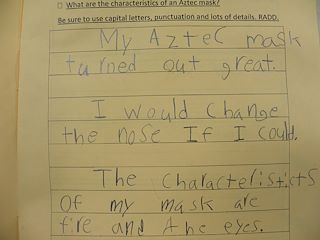 □ What are the characteristics of an Aztec mask?
Be sure to use capital letters, punctuation and lots of details. RADD.
My Aztec mask
turned out great.
I would change
the nose If I could.
The Characteristicts
Of my mask are
fire and the eyes.